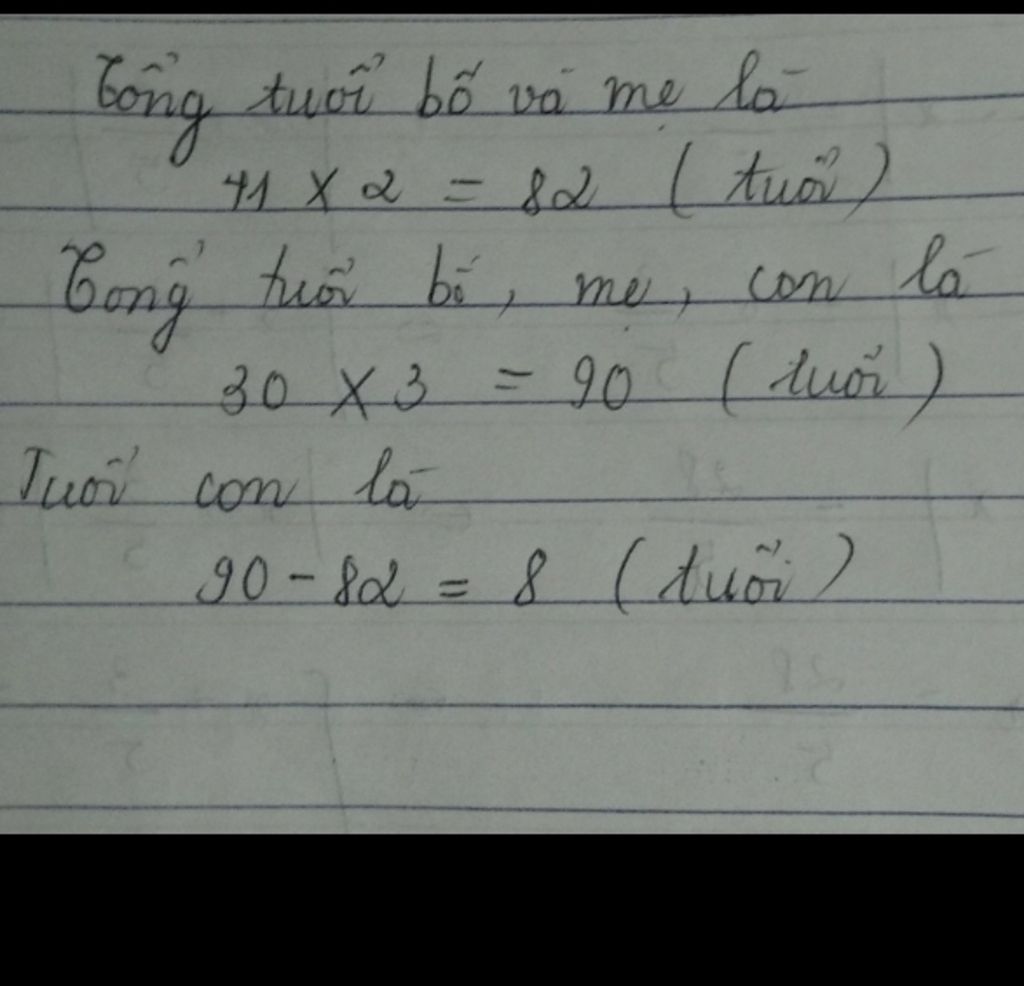 Tổng tuổi bố và mẹ là
41 x 2 = 82 (tuổi)
Tổng tuổi bố, mẹ, con là
30 x 3 = 90 (tuổi)
Tuổi con là
90 - 82 = 8 (tuổi)